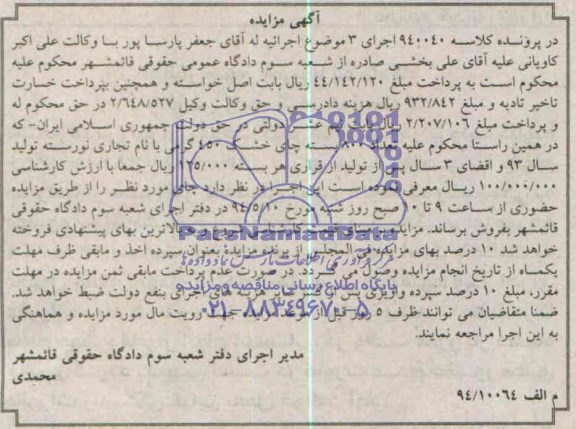 آگهی مزایده
در پرونده کلاسه ۹۴۰۰۴۰ اجرای ۳ موضوع اجرائیه له آقای جعفر پارسا پور با وکالت علی اکبر
کاویانی علیه آقای علی بخشی صادره از شعبه سوم دادگاه عمومی حقوقی قائمشهر محکوم علیه
محکوم است به پرداخت مبلغ ۴۴/۱۴۲/۱۲۰ ریال بابت اصل خواسته و همچنین بپرداخت خسارت
تاخیر تادیه و مبلغ ۹۳۲/۸۴۲ ریال هزینه دادرسی و حق وکالت وکیل ۲/۶۴۸/۵۲۷ در حق محکوم له
و پرداخت مبلغ ۲/۲۰۷/۱۰۶ ریال نیم عشر دولتی در حق دولت جمهوری اسلامی ایران- که
در همین راستا محکوم علیه تعداد بسته چای خشک ۴۵۰ گرمی با نام تجاری نورسته تولید
سال ۹۳ و اقضای ۳ سال پس از تولید از قراری هر بسته ۱۲۵/۰۰۰ ریال جمعا با ارزش کارشناسی
۱۰۰/۰۰۰/۰۰۰ ریال معرفی نموده است این اجرا در نظر دارد چای مورد نظر را از طریق مزایده
حضوری از ساعت ۹ تا ۱۰ صبح روز شنبه مورخ ۹۴/۵/۱۰ در دفتر اجرای شعبه سوم دادگاه حقوقی
قائمشهر بفروش برساند. مزایده از مبلغ کارشناسی شروع و به بالاترین بهای پیشنهادی فروخته
خواهد شد ۱۰ درصد بهای مزایده فی المجلس از برنده مزایده بعنوان سپرده اخذ و مابقی ظرف مهلت
یکماه از تاریخ انجام مزایده وصول می گردد. در صورت عدم پرداخت مابقی ثمن مزایده در مهلت
مقرر، مبلغ ۱۰ درصد سپرده واریزی پس از کسر هزینه های اجرای بنفع دولت ضبط خواهد شد.
ضمنا متقاضیان می توانند ظرف ۵ روز قبل از موعد مزایده جهت رویت مال مورد مزایده و هماهنگی
به این اجرا مراجعه نمایند.
مدیر اجرای دفتر شعبه سوم دادگاه حقوقی قائمشهر
محمدی
م الف ۹۴/۱۰۰۶۴
ParsNamadData
پایگاه اطلاع رسانی مناقصه و مزایده
۰۲۱-۸۸۳۴۹۶۷۰-۵